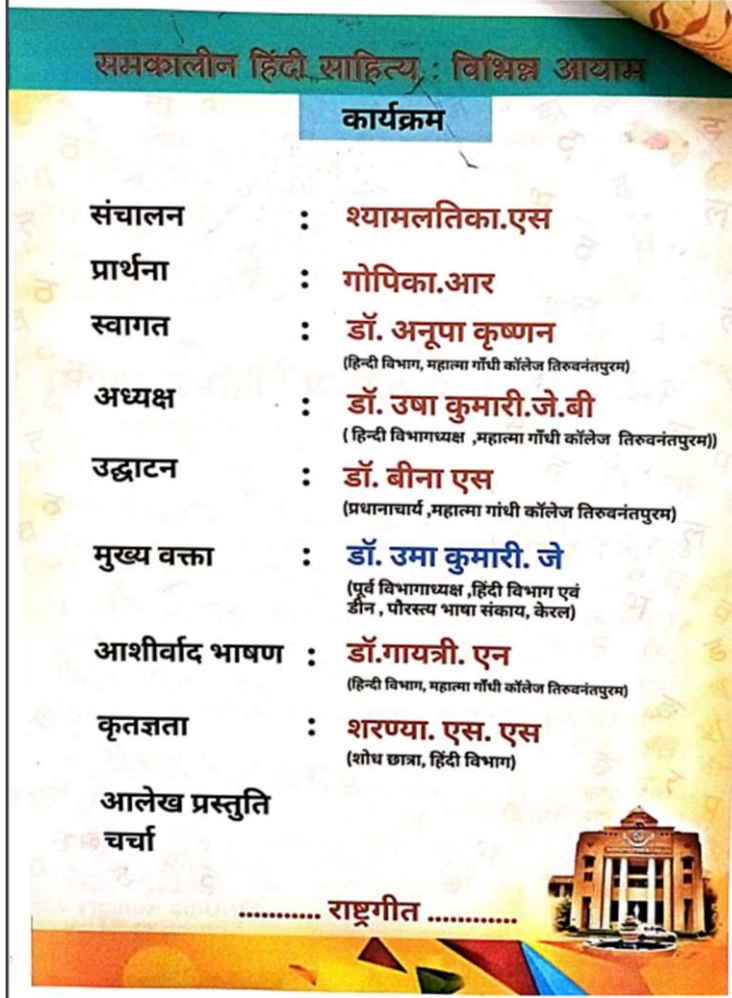 समकालीन हिंदी साहित्य : विभिन्न आयाम
कार्यक्रम
संचालन : श्यामलतिका.एस
प्रार्थना : गोपिका.आर
स्वागत : डॉ. अनूपा कृष्णन
(हिन्दी विभाग, महात्मा गाँधी कॉलेज तिरुवनंतपुरम)
अध्यक्ष : डॉ. उषा कुमारी.जे.बी
( हिन्दी विभागध्यक्ष ,महात्मा गाँधी कॉलेज तिरुवनंतपुरम))
उद्घाटन : डॉ. बीना एस
(प्रधानाचार्य ,महात्मा गांधी कॉलेज तिरुवनंतपुरम)
मुख्य वक्ता : डॉ. उमा कुमारी. जे
(पूर्व विभागाध्यक्ष ,हिंदी विभाग एवं
डीन , पौरस्त्य भाषा संकाय, केरल)
आशीर्वाद भाषण : डॉ.गायत्री. एन
(हिन्दी विभाग, महात्मा गाँधी कॉलेज तिरुवनंतपुरम)
कृतज्ञता : शरण्या. एस. एस
(शोध छात्रा, हिंदी विभाग)
आलेख प्रस्तुति
चर्चा
............ राष्ट्रगीत ............